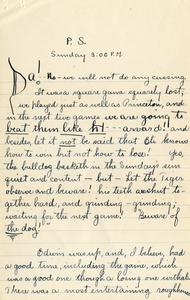 P.S.
Sunday 3:00 P.M.
Da! No - we will not do any cussing.
It was a square game squarely lost;
we played just as well as Princeton, and
in the next two games we are going to
beat them like h-l --- award!! and
besides, let it not be said that Eli knows
how to win but not how to lose! Yes,
the bulldog basketh in the Sunday's sun
quiet and content - but - let the Tiger
observe and beware! his teeth are shut to-
gether hard, and grinding - grinding;
waiting for the next game! Beware of
the dog!
was up, and, I believe, had
a good time, including the game, which
was a good one though a losing one.
There was a most entertaining